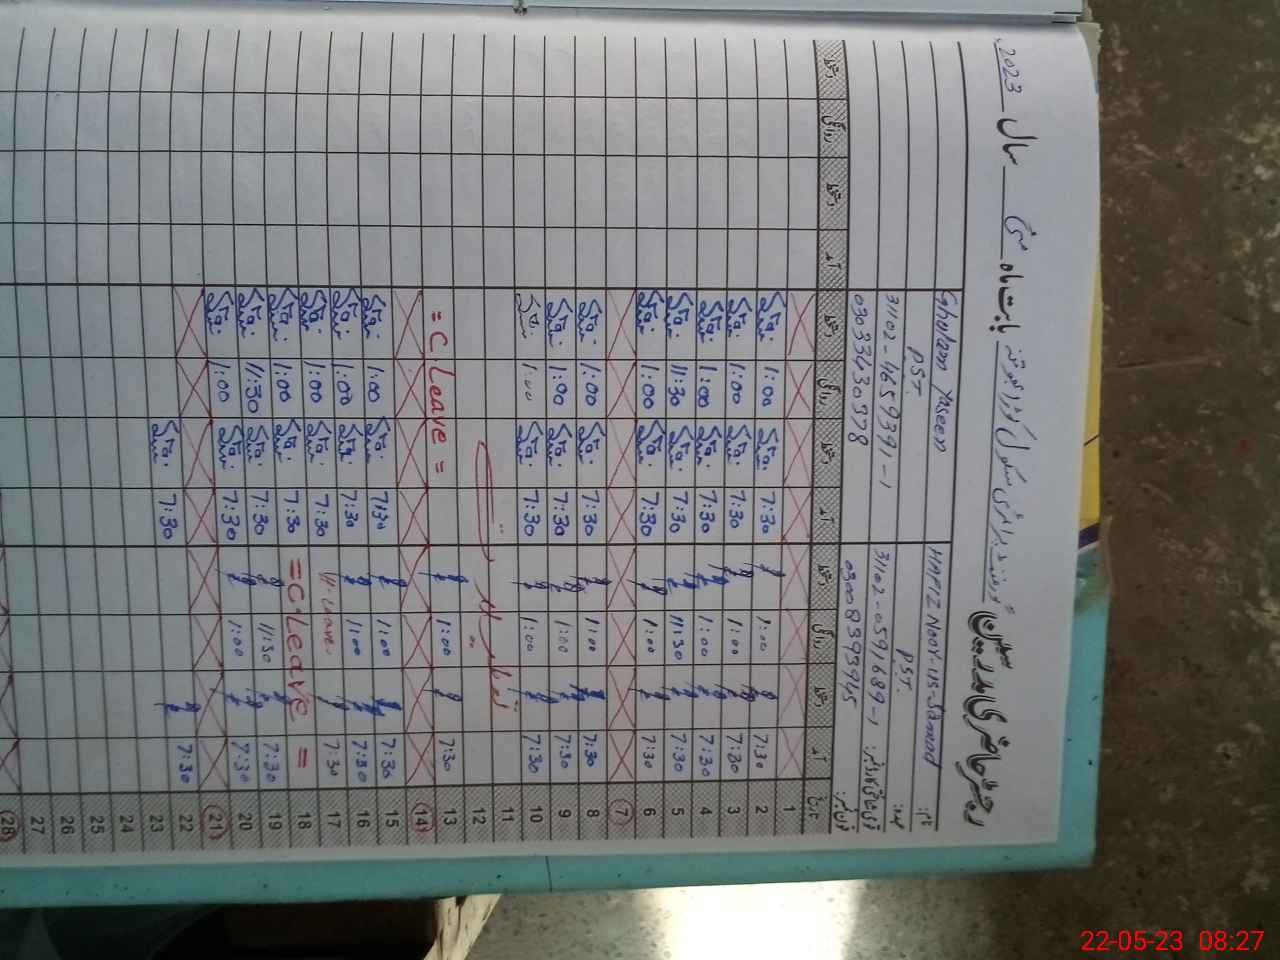 رجسٹر حاضری مدرسین بابت ماہ مئی سال 2023ء
نام: HAFIZ Noor-us-Samad Ghulam Yaseen
عہدہ: PST. PST.
قومی شناختی کارڈ نمبر: 31102-0591689-1 31102-4659391-1
فون نمبر: 03008393945 03033430378
تاریخ آمد دستخط روانگی دستخط آمد دستخط روانگی دستخط آمد دستخط روانگی دستخط
1
2 7:30 1:00 7:30 1:00
3 7:30 1:00 7:30 1:00
4 7:30 1:00 7:30 1:00
5 7:30 11:30 7:30 11:30
6 7:30 1:00 7:30 1:00
7
8 7:30 1:00 7:30 1:00
9 7:30 1:00 7:30 1:00
10 7:30 1:00 7:30 1:00
11
12
13 7:30 1:00 = C. Leave =
14
15 7:30 1:00 7:30 1:00
16 7:30 1:00 7:30 1:00
17 7:30 H-Leave. 7:30 1:00
18 = C. Leave = 7:30 1:00
19 7:30 11:30 7:30 11:30
20 7:30 1:00 7:30 1:00
21
22 7:30 7:30
23
24
25
26
27
28
22-05-23 08:27